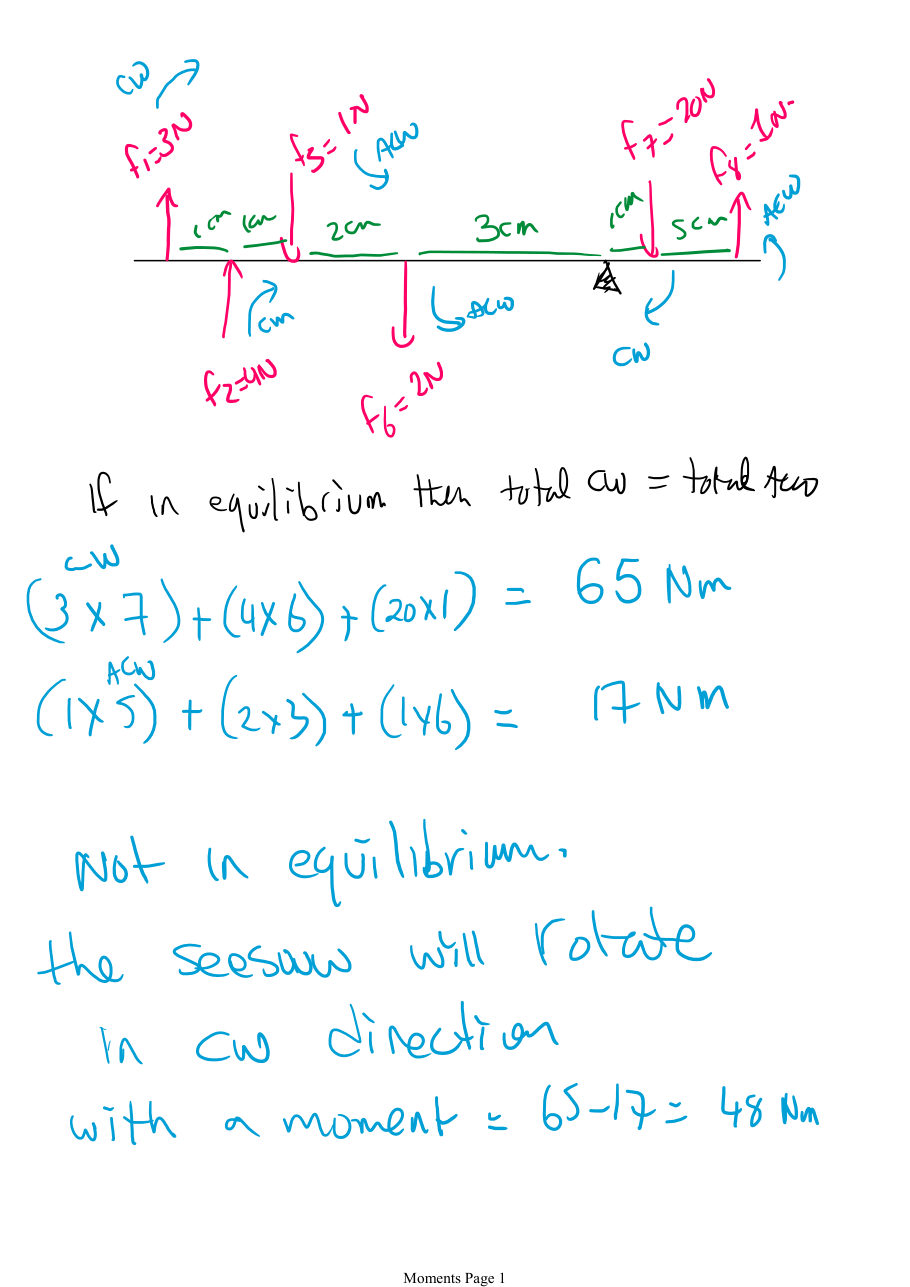 CW
f1=3N
f3=1N
ACW
f7=20N
f8=1N
1cm
1cm
2cm
3cm
1cm
5cm
ACW
cm
ACW
CW
f2=4N
f6=2N
If in equilibrium then total CW = total ACW
CW
(3 x 7) + (4x6) + (20x1) = 65 Nm
ACW
(1x5) + (2x3) + (1x6) = 17 Nm
Not in equilibrium.
the seesaw will rotate
in CW direction
with a moment = 65-17 = 48 Nm
Moments Page 1